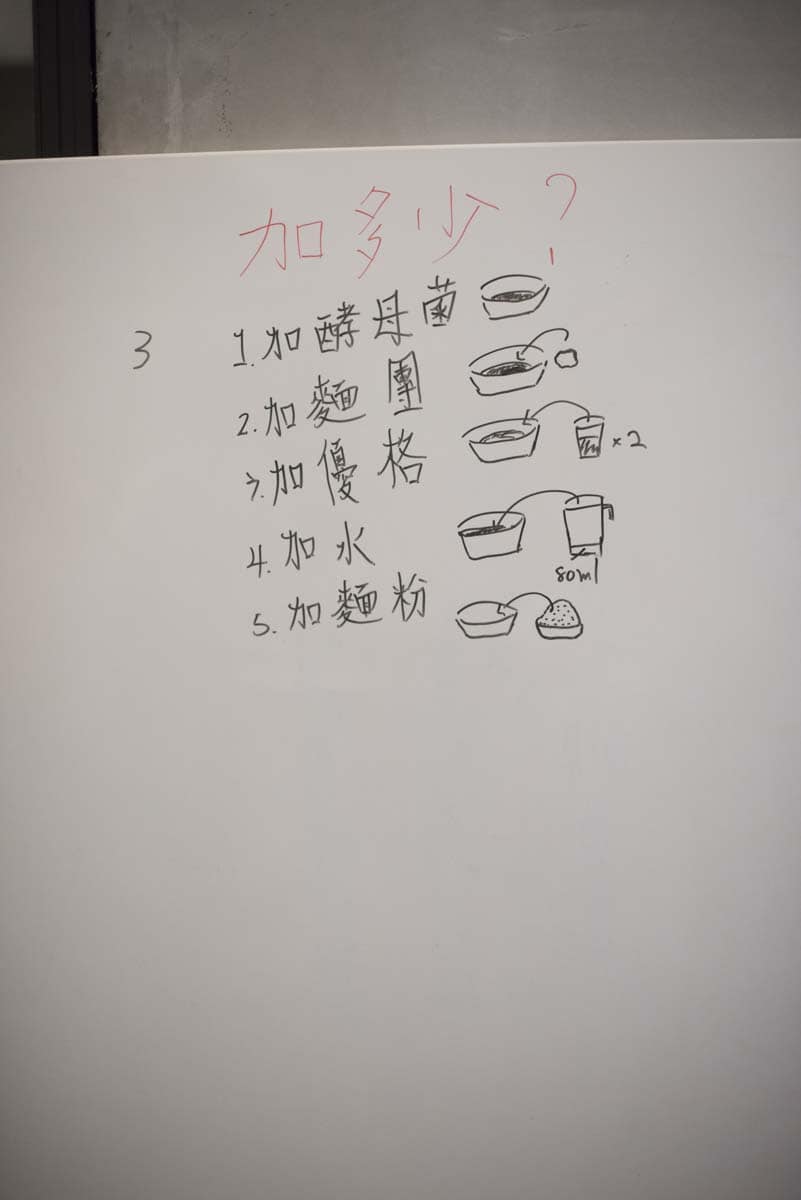 加多少?
3
1.加酵母菌
2.加麵團
3.加優格 ×2
4.加水
80ml
5.加麵粉